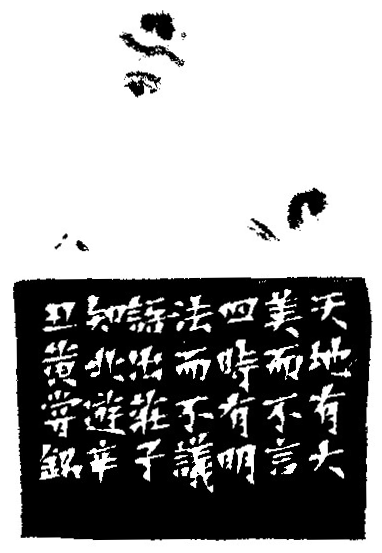 天地有大
美而不言
四時有明
法而不議
語出莊子
知北遊辛
丑黃嘗銘